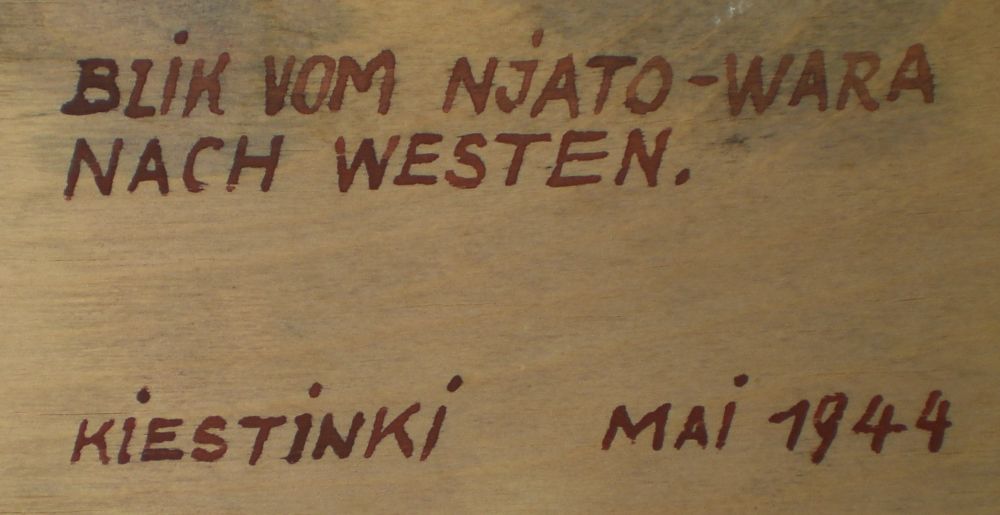 BLIK VOM NJATO-WARA
NACH WESTEN.
KIESTINKI MAI 1944